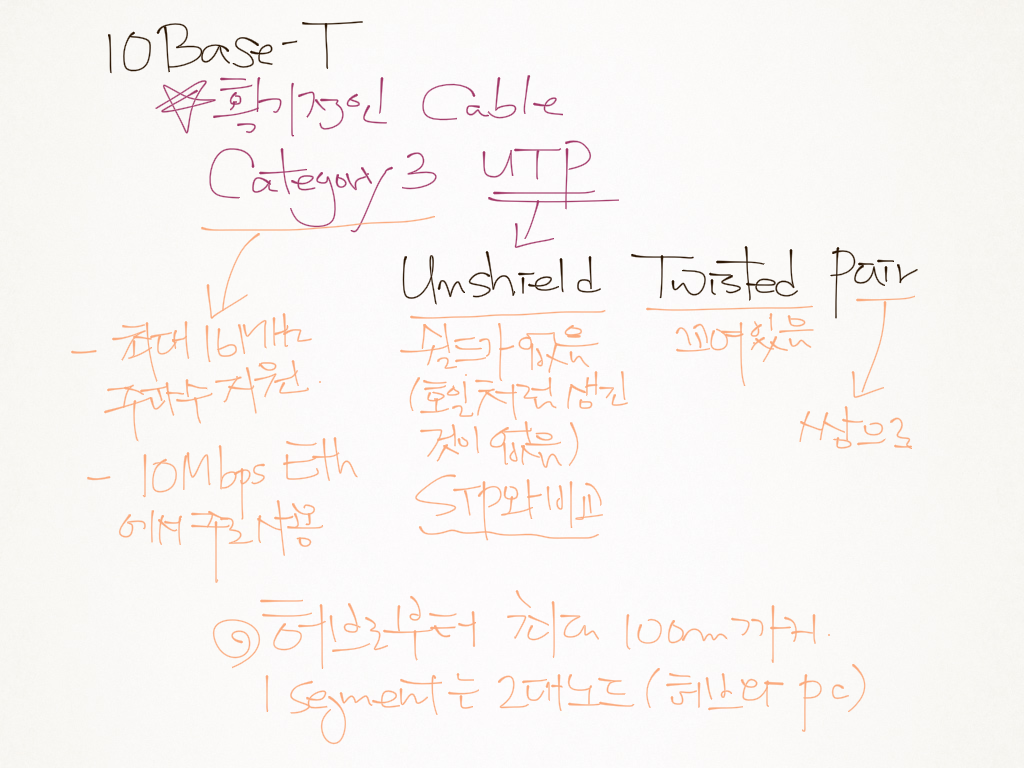 10Base-T
☆획기적인 Cable
Category 3 UTP
Unshield Twisted pair
- 최대 16MHz
주파수 지원.
- 10Mbps Eth
에서 주로 사용
쉴드가 없음
(호일처럼 생긴
것이 없음)
STP와 비교
꼬여있음
쌍으로
허브로부터 최대 100m까지.
1 segment는 2대노드 (허브와 pc)